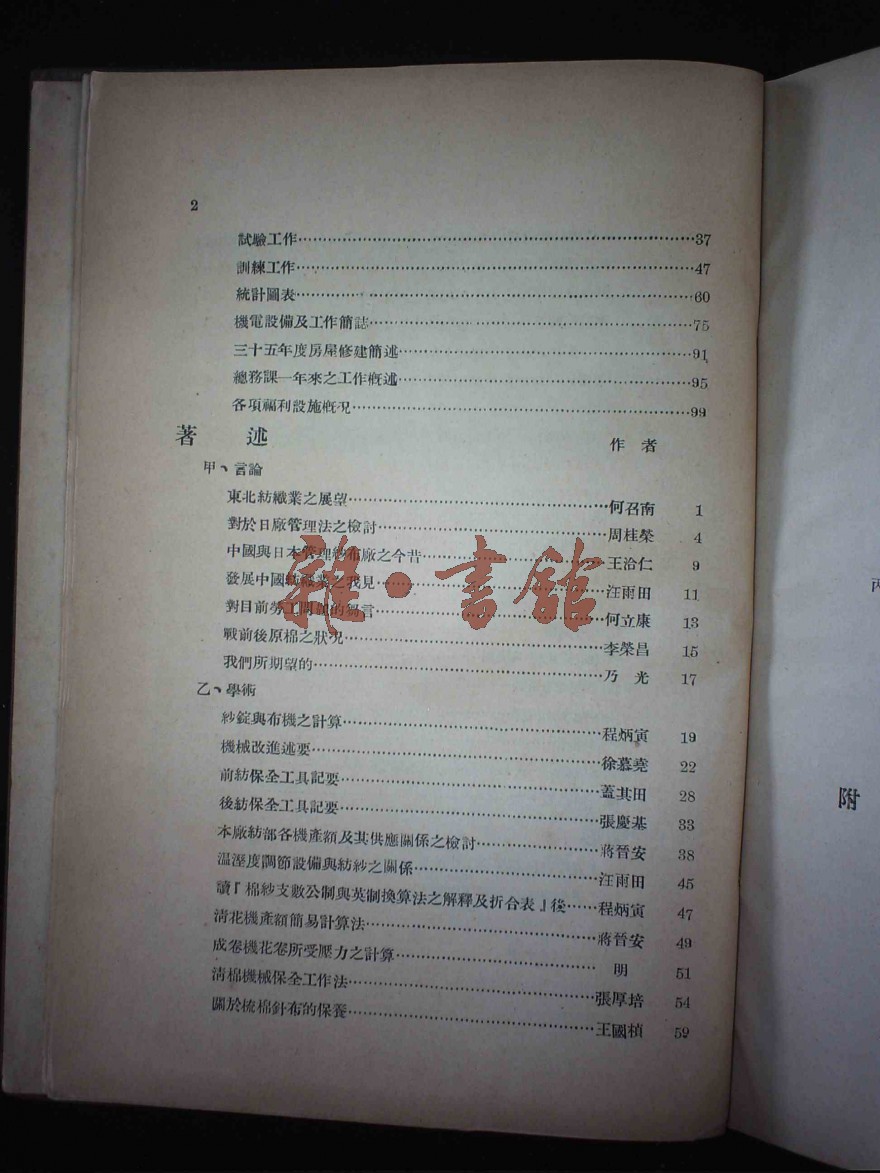 2
試驗工作……37
訓練工作……47
統計圖表……60
機電設備及工作簡誌……75
三十五年度房屋修建簡述……91
總務課一年來之工作概述……95
各項福利設施概况……99
著 述 作 者
甲、言論
東北紡織業之展望……何召南 1
對於日廠管理法之檢討……周桂榮 4
中國與日本管理紗布廠之今昔……王治仁 9
發展中國紡織業之我見……汪雨田 11
對目前勞工問題的芻言……何立康 13
戰前後原棉之狀况……李榮昌 15
我們所期望的……乃 光 17
乙、學術
紗錠與布機之計算……程炳寅 19
機械改進述要……徐慕堯 22
前紡保全工具記要……蓋其田 28
後紡保全工具記要……張慶基 33
本廠紡部各機產額及其供應關係之檢討……蔣晉安 38
温溼度調節設備與紡紗之關係……汪雨田 45
讀『棉紗支數公制與英制換算法之解釋及折合表』後……程炳寅 47
清花機產額簡易計算法……蔣晉安 49
成卷機花卷所受壓力之計算……明 51
清棉機械保全工作法……張厚培 54
關於梳棉針布的保養……王國楨 59
雜·書館
丙
附